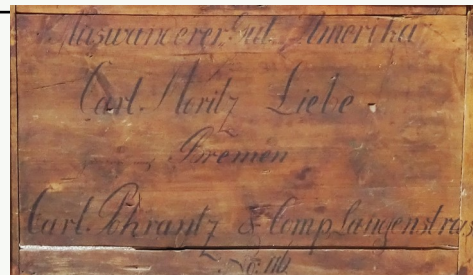 Auswanderer Gut. Amerika
Carl. Moritz Liebe
Bremen
Carl. Pokrantz & Comp. Langenstras
No: 116